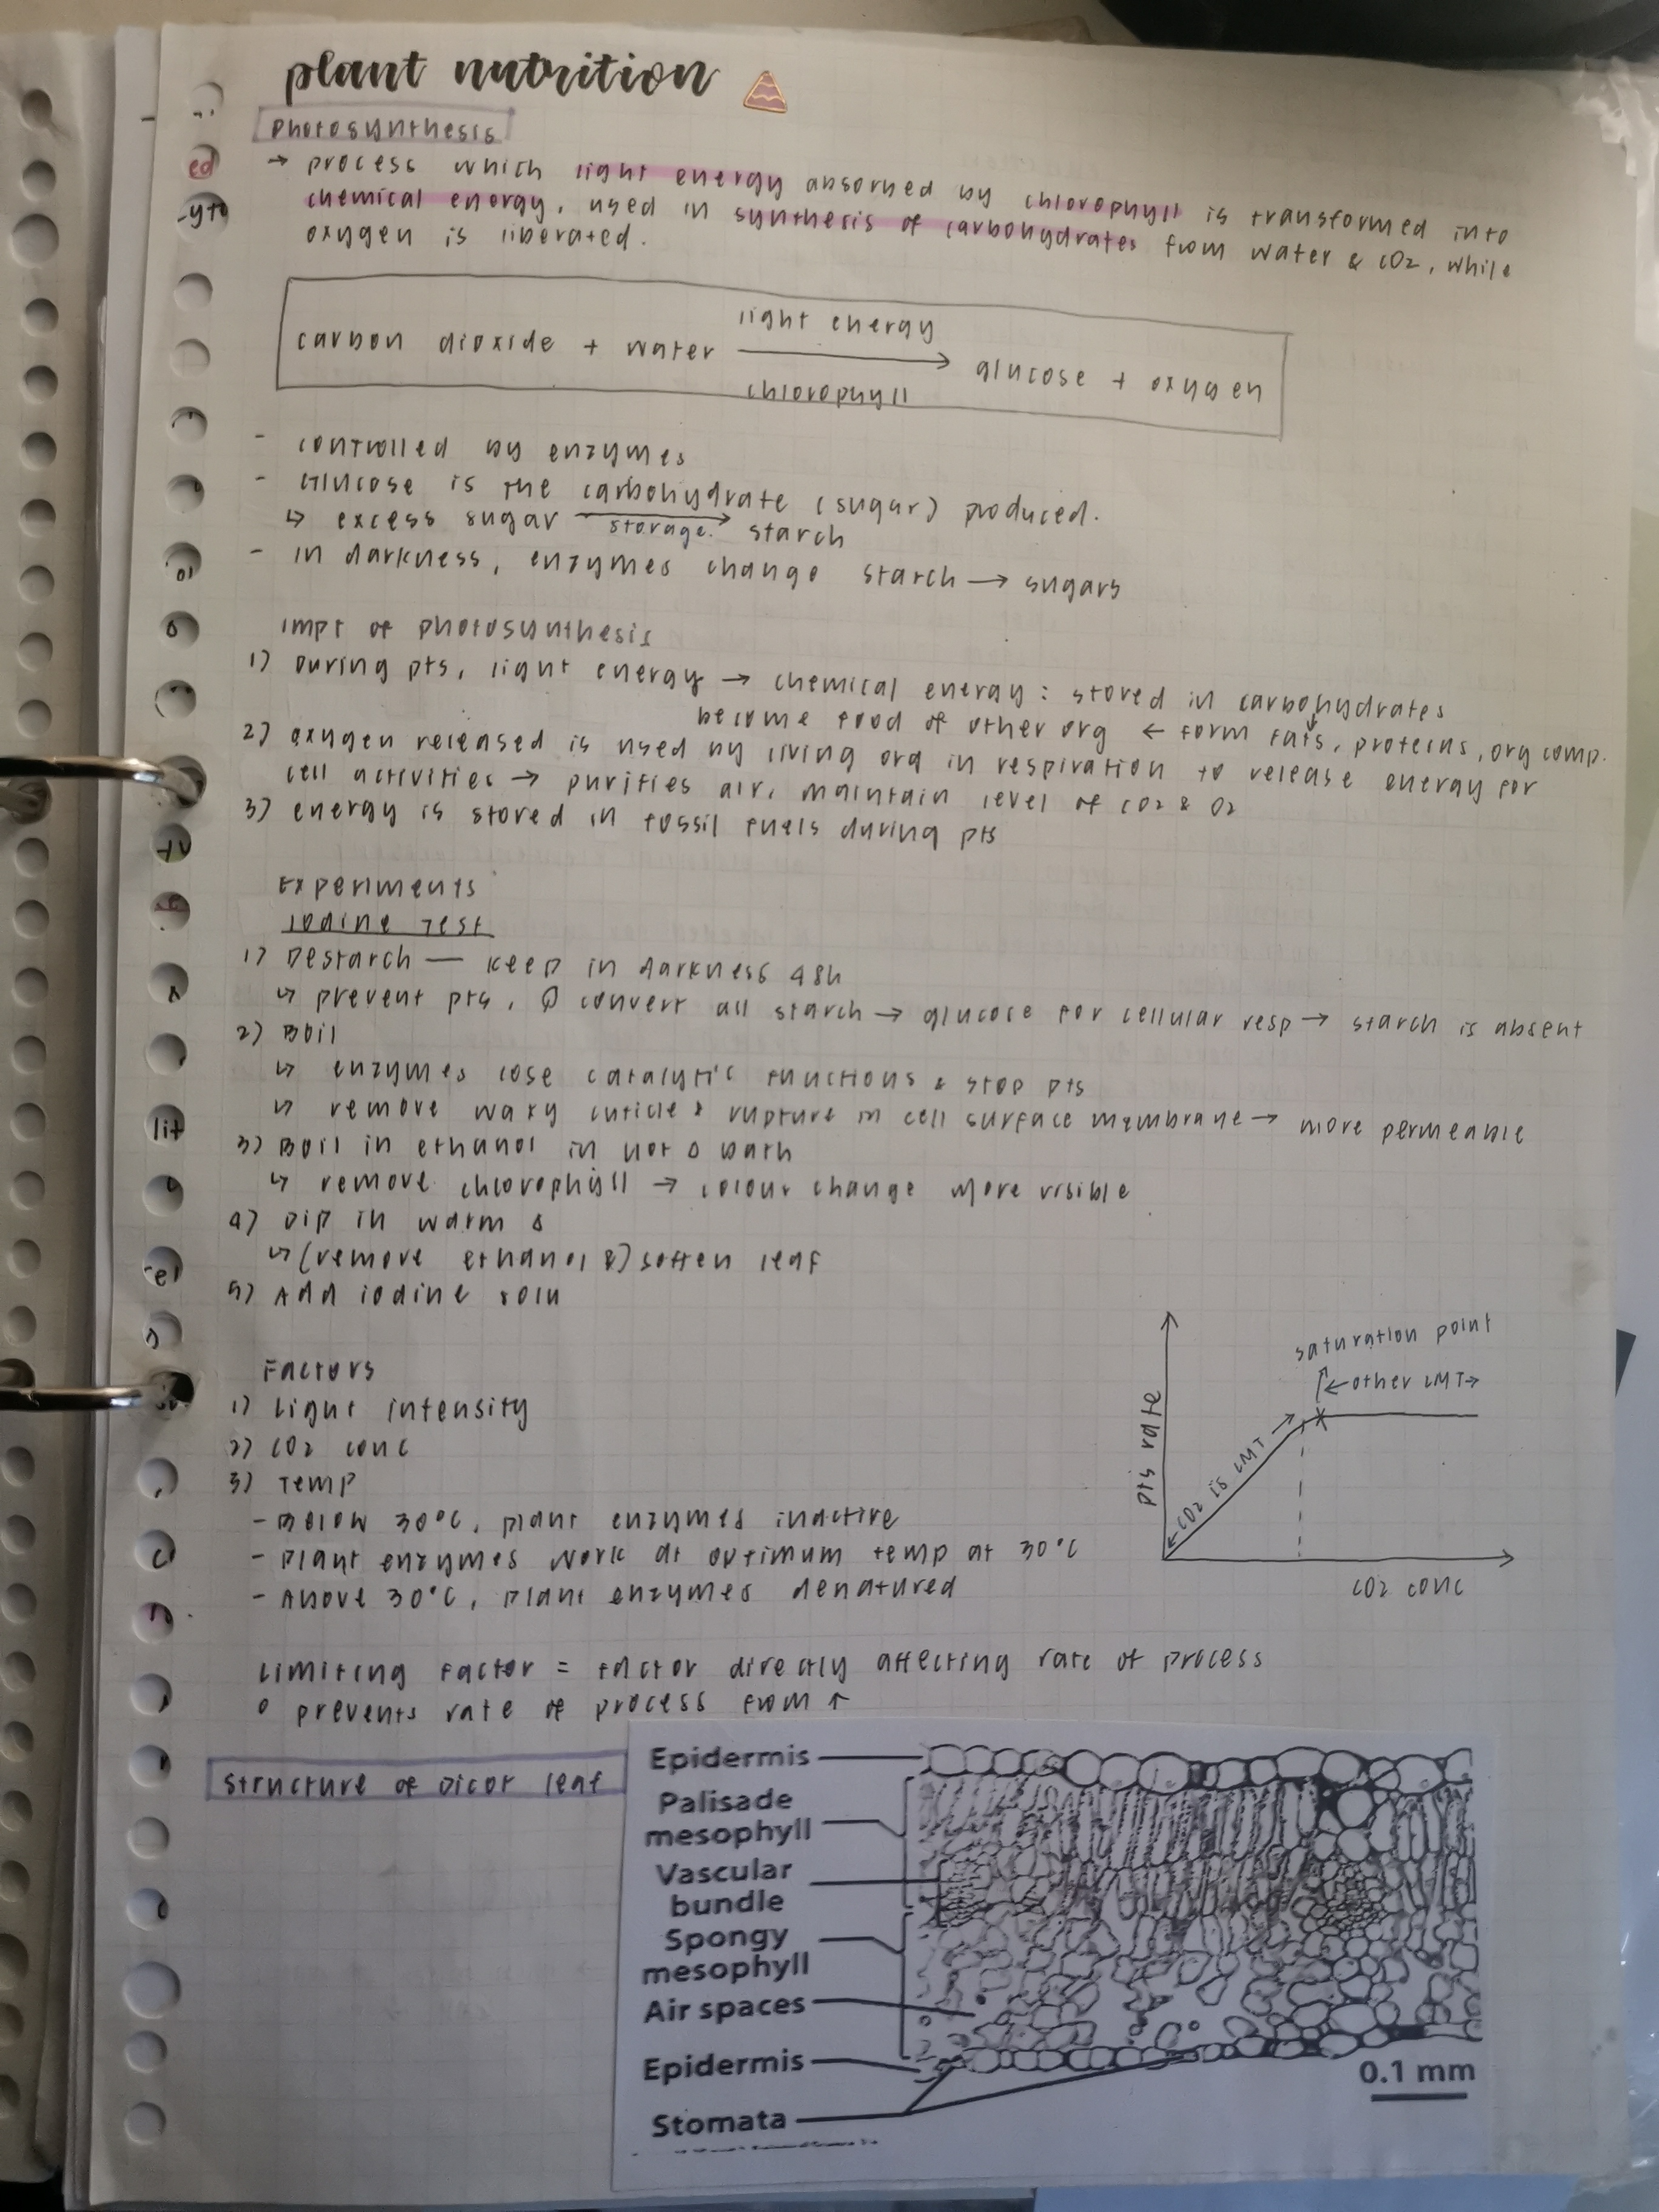 plant nutrition
Photosynthesis
→ process which light energy absorbed by chlorophyll is transformed into
chemical energy, used in synthesis of carbohydrates from water & CO2, while
oxygen is liberated.
light energy
carbon dioxide + water → glucose + oxygen
chlorophyll
- controlled by enzymes
- Glucose is the carbohydrate (sugar) produced.
↳ excess sugar → starch
storage.
- in darkness, enzymes change starch → sugars
impt of photosynthesis
1) During pts, light energy → chemical energy : stored in carbohydrates
become food of other org ← form fats, proteins, org comp.
2) oxygen released is used by living org in respiration to release energy for
cell activities → purifies air, maintain level of CO2 & O2
3) energy is stored in fossil fuels during pts
Experiments
Iodine Test
1) Destarch — keep in darkness 48h
↳ prevent pts, convert all starch → glucose for cellular resp → starch is absent
2) Boil
↳ enzymes lose catalytic functions & stop pts
↳ remove waxy cuticle & rupture in cell surface membrane → more permeable
3) Boil in ethanol in hot bath
↳ remove chlorophyll → colour change more visible
4) Dip in warm
↳ (remove ethanol &) soften leaf
5) Add iodine soln
Factors
1) Light intensity
2) CO2 conc
3) Temp
- Below 30°C, plant enzymes inactive
- Plant enzymes work at optimum temp at 30°C
- Above 30°C, plant enzymes denatured
saturation point
← other LMT →
← CO2 is LMT →
pts rate
CO2 conc
Limiting factor = factor directly affecting rate of process
° prevents rate of process from ↑
Structure of Dicot leaf
Epidermis
Palisade
mesophyll
Vascular
bundle
Spongy
mesophyll
Air spaces
Epidermis
0.1 mm
Stomata
ed
-yto
lit
rel